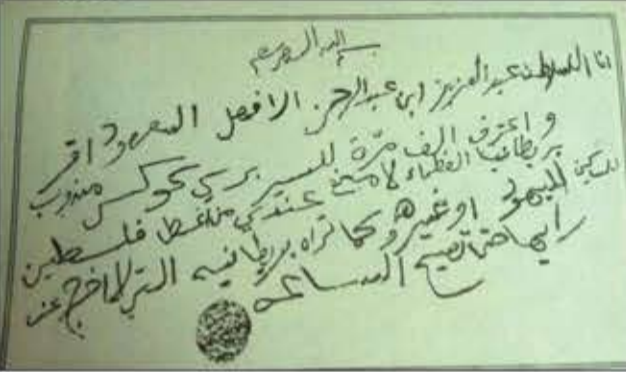 بسم الله الرحمن الرحيم
انا السلطان عبد العزيز ابن عبد الرحمن ال افصل السعود اقر
و اعترف الف مرّة للسير برسي كوكس مندوب
بريطانيا العظماء لا منع عندي من اعطا فلسطين
للمساكين اليهود او غيرهم وكما تراه بريطانيه التي لا اخرج عن
رايها حتى تصيح الساعه